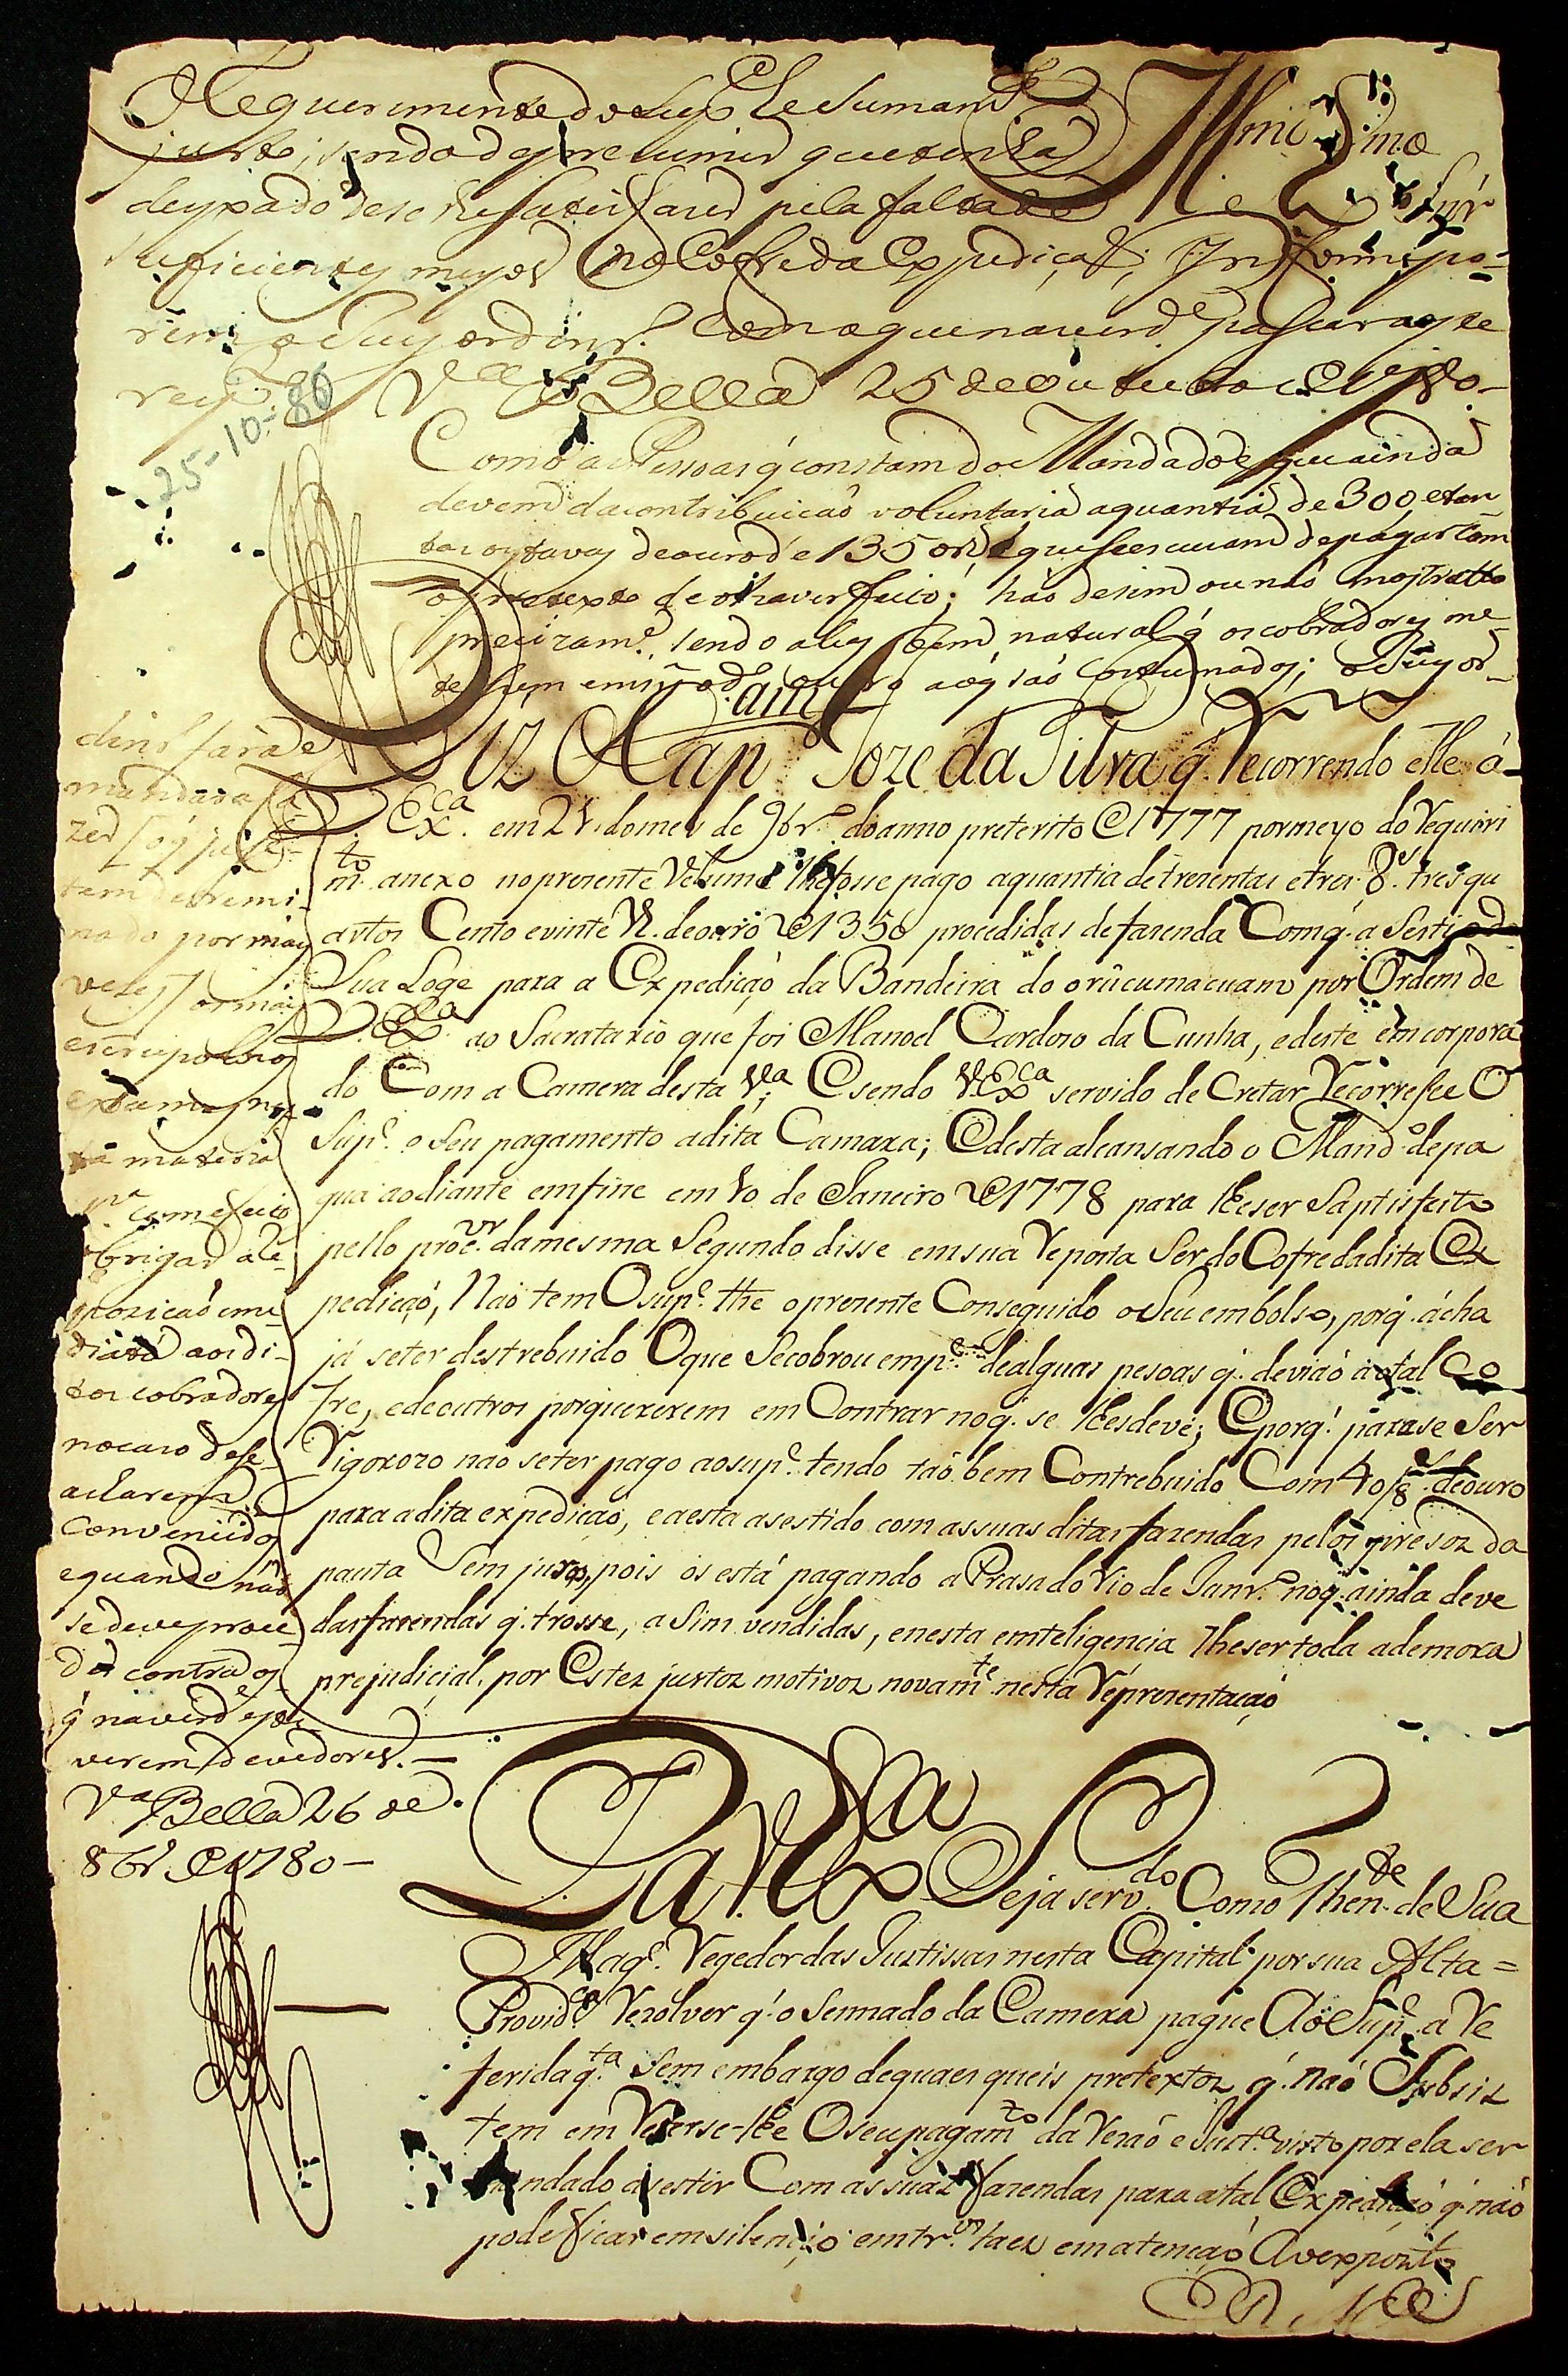 Requerimento do Sup.e he sumam.te
justo, sendo de prezumir que tenha
deyxado de se lhe satisfazer pela falta de
sufficientes meyos no Cofre da Expediçaõ; Informe po-
rem o Juiz ordin.r. com o que na verd.e passar a este
resp.to V.lla Bella 25 de Outubro e 1780-
25-10-80
Illmo e Exmo Snr
Como as Pessoas q̃ constam do Mandado, e que ainda
devem da contribuicaõ voluntaria a quantia de 300, e tan-
tas oytavas de ouro de 1350 rz, e que se escuzam de pagar com
o pretexto de o haver feito; haõ de sim ou naõ mostrallo
precizam.e, sendo aliàs bem natural q̃ os cobradores me-
tessem em si o d.o ouro a q̃ saõ costumados; o Juiz or-
dinr.o fará e
mandará fa-
zer [o q̃ já se
tem detremi-
nado por mais
vezes] os mais
escrupolozos
exames nes-
ta materia
p.a com efeito
obrigar á re-
pozicaõ ime-
diata aos di-
tos cobradores
no cazo de se
aclarem
convencidos
e quando naõ
se deve proce-
der contra os
q̃ na verd.e esti-
verem devedores.-
V.a Bella 26 de
8br.o e 1780-
Diz o Cap.am Joze da Silva q. Recorrendo elle á
V. Ex.ca em 21 do mes de 9br.o do anno preterito e 1777 por meyo do Requiri
m.to anexo no prezente Velume lhe fosse pago a quantia de trezentas e tres 8.as tres qu
artos Cento e vinte R. de ouro e 1350 procedidas de fazenda Com q. a Sestio de
Sua Loge para a Expediçaõ da Bandeira do orûcumacuam por Ordem de
V. Ex.a ao Sacratario que foi Manoel Cardozo da Cunha, e deste emcorpora
do Com a Camera desta V.a E sendo V. Ex.ca servido de Cretar Recorresse O
Sup.e o Seu pagamento a dita Camara; E desta alcansando o Mand.o de pa
gua ao diante emfine em 10 de Janeiro e 1778 para lhe ser Saptisfeito
pello proc.or da mesma Segundo disse em sua Reposta Ser do Cofre da dita Ex
pediçaõ, Naõ tem O sup.e thé o prezente Conseguido o Seu embolso, porq. ácha
já se ter destrebuido O que Se cobrou em p.e de alguas pesoas q. deviaõ a o tal Co
fre, e de outros porquererem em Contrar no q. se lhes deve; E porq. parase Ser
Rigorozo naõ se ter pago ao sup.e tendo taõ bem Contrebuido Com 40/8.as de ouro
para a dita expediçaõ, e a esta asestido com as suas ditas fazendas pelos presoz da
pauta Sem juros, pois os está pagando a Prasa do Rio de Janr.o no q. ainda deve
das fazendas q. trosse, a Sim vendidas, e nesta emteligencia lhe ser toda a demora
prejudicial, por Estez justoz motivoz novam.te nesta Réprezentaçaõ
P.a V. Ex.a Seja serv.do Como Then.te de Sua
Mag.e Regedor das Justissas nesta Capital por sua Alta=
Provid.ca Rezolver q. o Sennado da Camera pague Ao Sup.e a Re
ferida q.ta Sem embargo de quaes queis pretextoz q. naõ Subsiz
tem em Reterse-lhe O seu pagam.to da Rezaõ e Just.a visto por ela ser
mandado asestir Com as suaz fazendas para a tal Expediçaõ q. naõ
pode ficar em silençio em tr.os taes em atençaõ A o exposto
E. R. M.ce